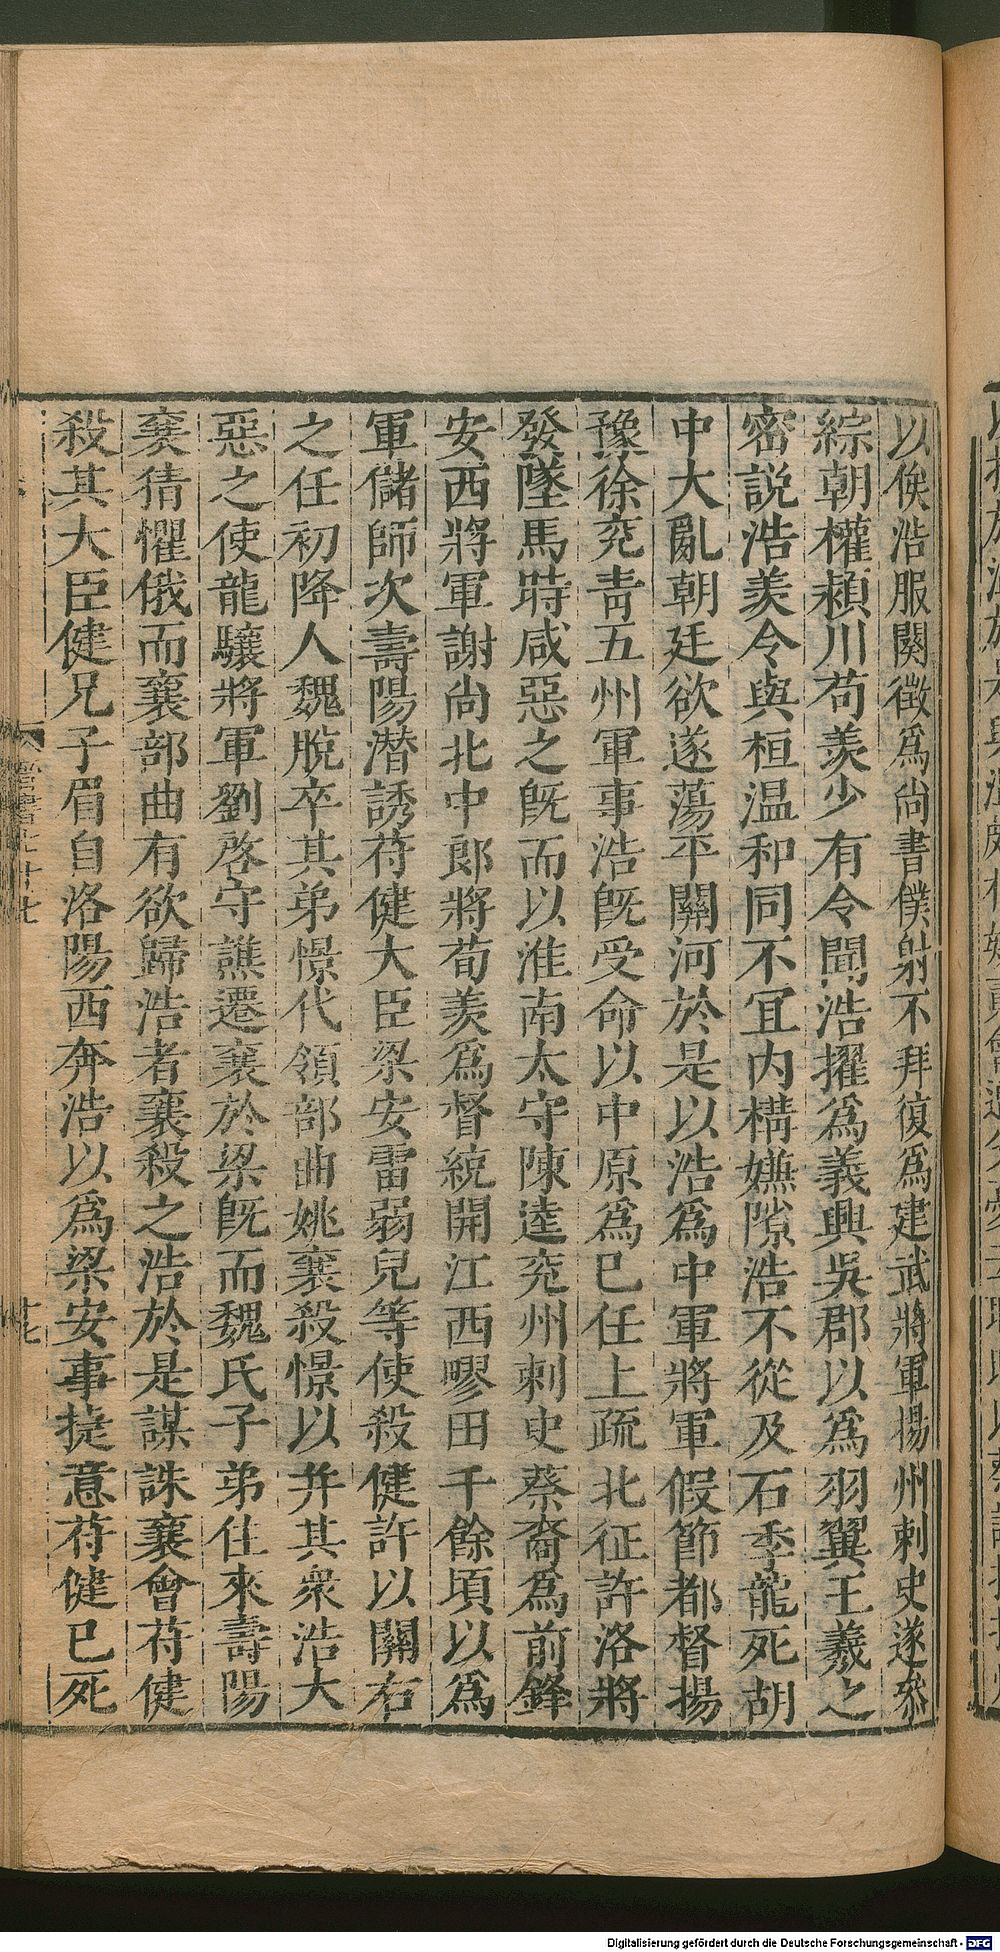 以俟浩服闋徵爲尚書僕射不拜復爲建武將軍揚州刺史遂叅
綜朝權潁川荀羨少有令聞浩擢爲義興吳郡以爲羽翼王羲之
密說浩羨令與桓温和同不宜内構嫌隙浩不從及石季龍死胡
中大亂朝廷欲遂蕩平關河於是以浩爲中軍將軍假節都督揚
豫徐兖青五州軍事浩旣受命以中原爲已任上疏北征許洛將
發墜馬時咸惡之旣而以淮南太守陳逵兖州刺史蔡裔爲前鋒
安西將軍謝尚北中郎將荀羨爲督統開江西疁田千餘頃以爲
軍儲師次壽陽潜誘苻健大臣梁安雷弱兒等使殺健許以關右
之任初降人魏脫卒其弟憬代領部曲姚襄殺憬以并其衆浩大
惡之使龍驤將軍劉啓守譙遷襄於梁旣而魏氏子弟往來壽陽
襄猜懼俄而襄部曲有欲歸浩者襄殺之浩於是謀誅襄會苻健
殺其大臣健兄子眉自洛陽西奔浩以爲梁安事捷意苻健已死
Digitalisierung gefördert durch die Deutsche Forschungsgemeinschaft - DFG